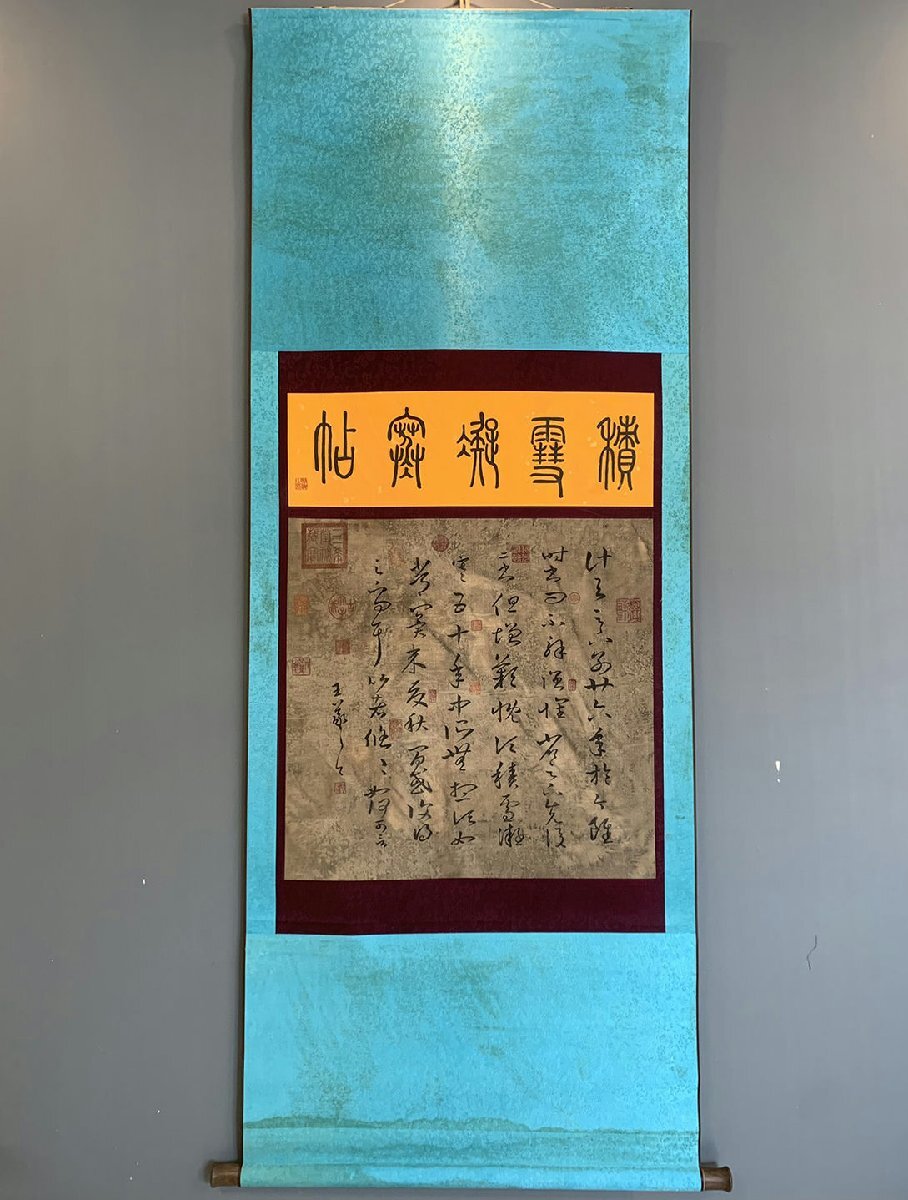 積雪凝寒帖
計與足下別廿六年於今雖
時書問不解闊懷省足下先後
二書但增歎慨頃積雪凝
寒五十年中所無想頃如
常冀來夏秋間或復得
足下問耳比者悠〻如何可言
王羲之